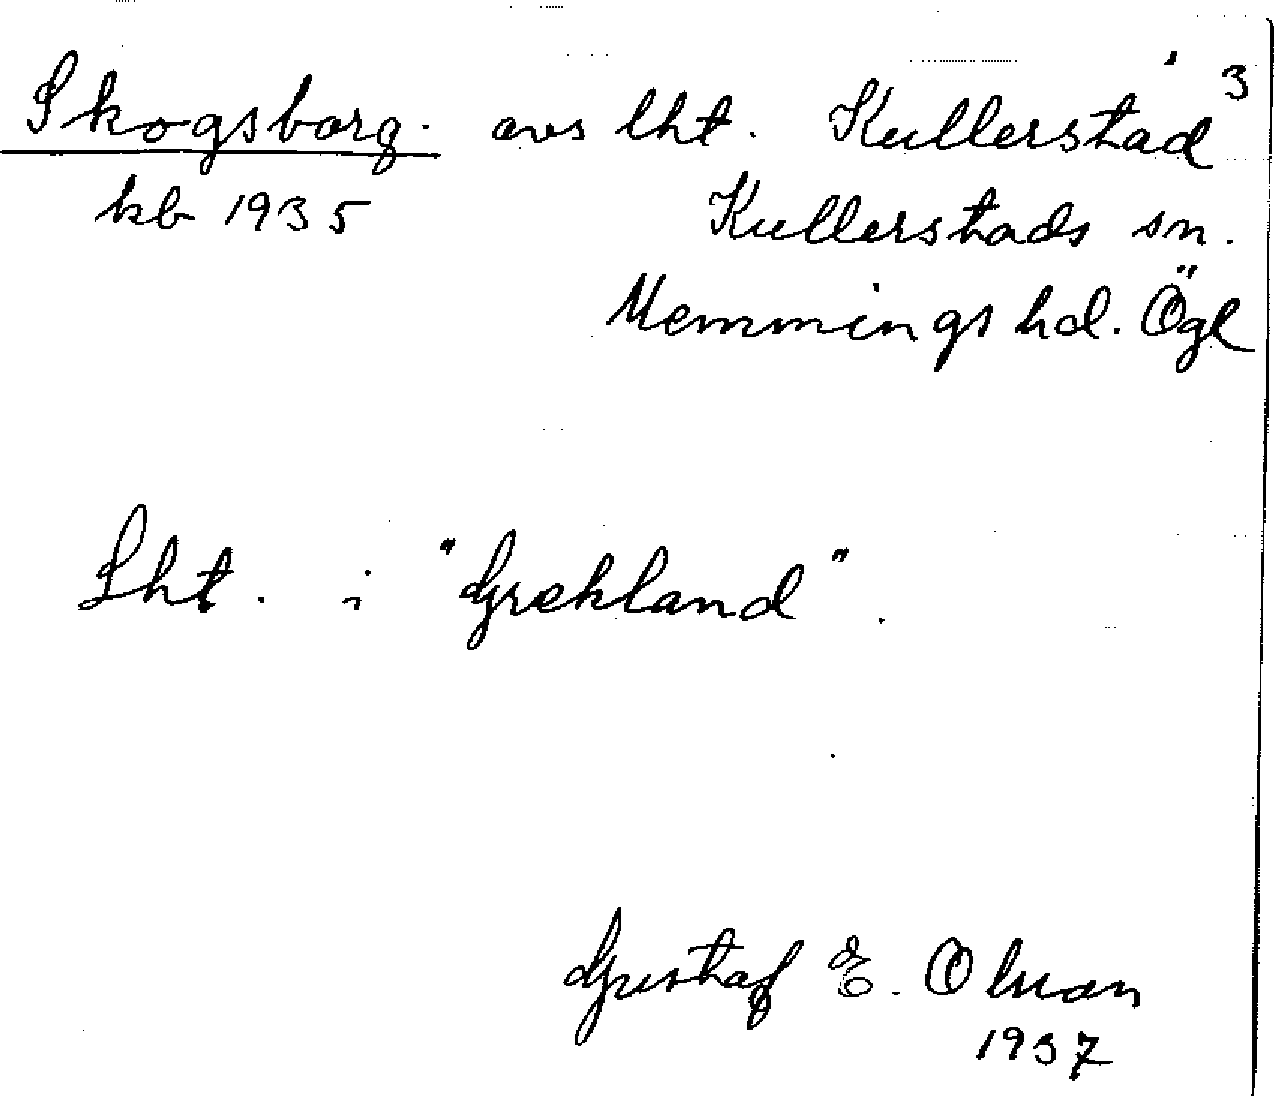 Skogsborg. avs lht. Kullerstad 3
kb 1935 Kullerstads sn.
Memmings hd. Ögl
Lht. i "Grekland".
Gustaf E. Olson
1937